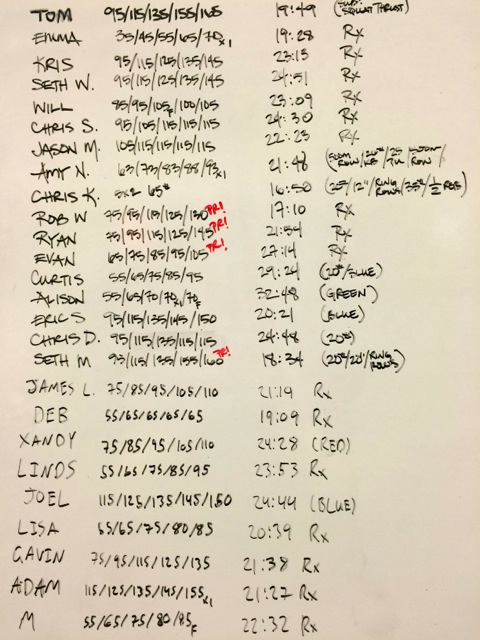 TOM 95/115/135/155/165 19:49 (SQUAT THRUST)
EMMA 35/45/55/65/70x1 19:28 Rx
KRIS 95/115/125/135/145 23:15 Rx
SETH W. 95/115/125/135/145 24:51 Rx
WILL 85/95/105F/100/105 23:09 Rx
CHRIS S. 95/105/115/115/115 24:30 Rx
JASON M. 105/115/115/115/115 22:23 Rx
AMY N. 63/73/83/88/93x1 21:48
CHRIS K. 5x2 65# 16:50 (25"/12"/RING ROWS/35#/½ REPS)
ROB W 75/95/115/125/130 PR! 17:10 Rx
RYAN 75/95/115/125/145 PR! 21:54 Rx
EVAN 65/75/85/95/105 PR! 27:14 Rx
CURTIS 55/65/75/85/95 29:24 (20"/BLUE)
ALISON 55/65/70/70x1/70F 32:48 (GREEN)
ERIC S 95/115/135/145/150 20:21 (BLUE)
CHRIS D. 95/115/135/115/115 24:48 (20#)
SETH M 95/115/135/155/160 PR! 18:34 (20#/20"/RING ROWS)
JAMES L. 75/85/95/105/110 21:19 Rx
DEB 55/65/65/65/65 19:09 Rx
XANDY 75/85/95/105/110 24:28 (RED)
LINDS 55/65/75/85/95 23:53 Rx
JOEL 115/125/135/145/150 24:44 (BLUE)
LISA 55/65/75/80/85 20:39 Rx
GAVIN 75/95/115/125/135 21:38 Rx
ADAM 115/125/135/145/155x1 21:27 Rx
M 55/65/75/80/85F 22:32 Rx